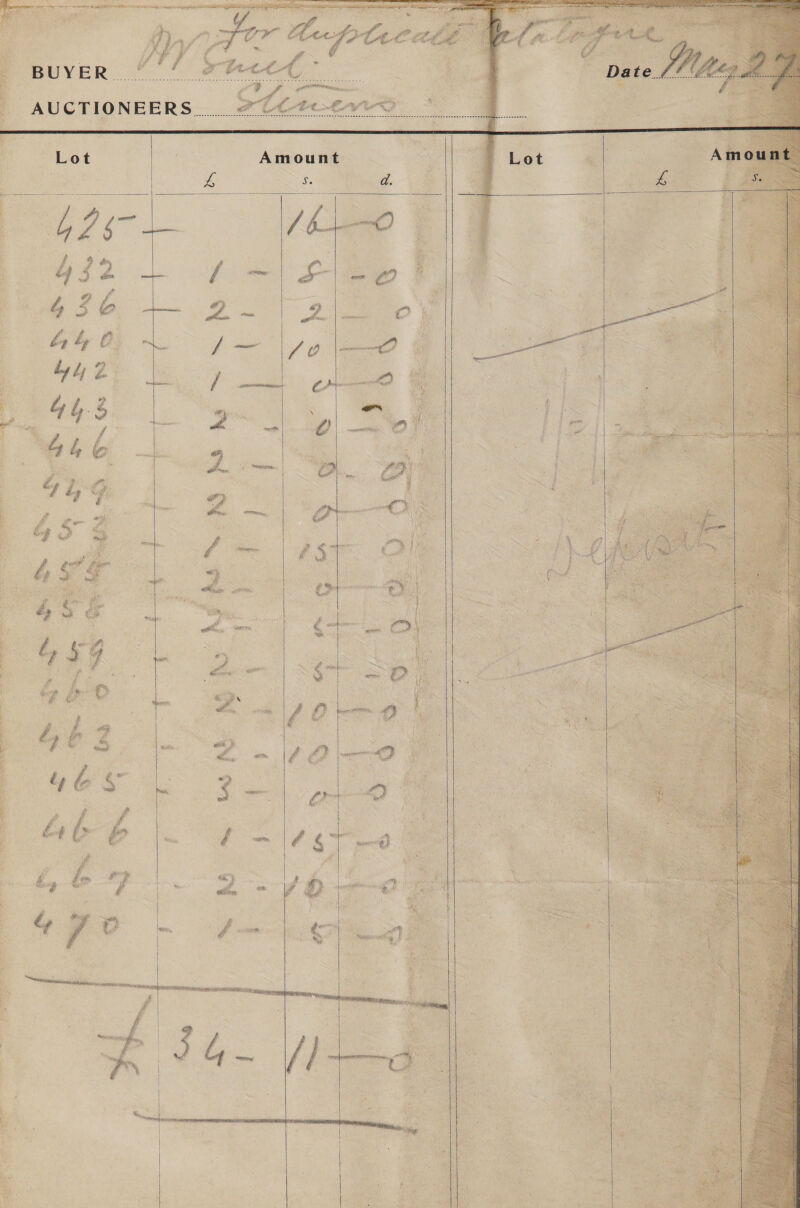 For duplicate Catalogue
BUYER
Date May 27
AUCTIONEERS Stevens
Lot Amount Lot Amount
£ s. d. £ s.
425 — 16 — 0
432 — 1 — 8 — 0
436 — 2 — 2 — 0
440 — 1 — 10 — 0
442 — 1 — 0 — 0
443 — 2 — 0 — 0
446 — 2 — 0 — 0
449 — 2 — 0 — 0
453 — 1 — 15 — 0
455 — 2 — 0 — 0
458 — 2 — 5 — 0
459 — 2 — 5 — 0
460 — 2 — 10 — 0
463 — 2 — 10 — 0
465 — 3 — 0 — 0
466 — 1 — 15 — 0
467 — 2 — 10 — 0
470 — 1 — 5 — 0
£ 34 — 11 — 0
Deposit